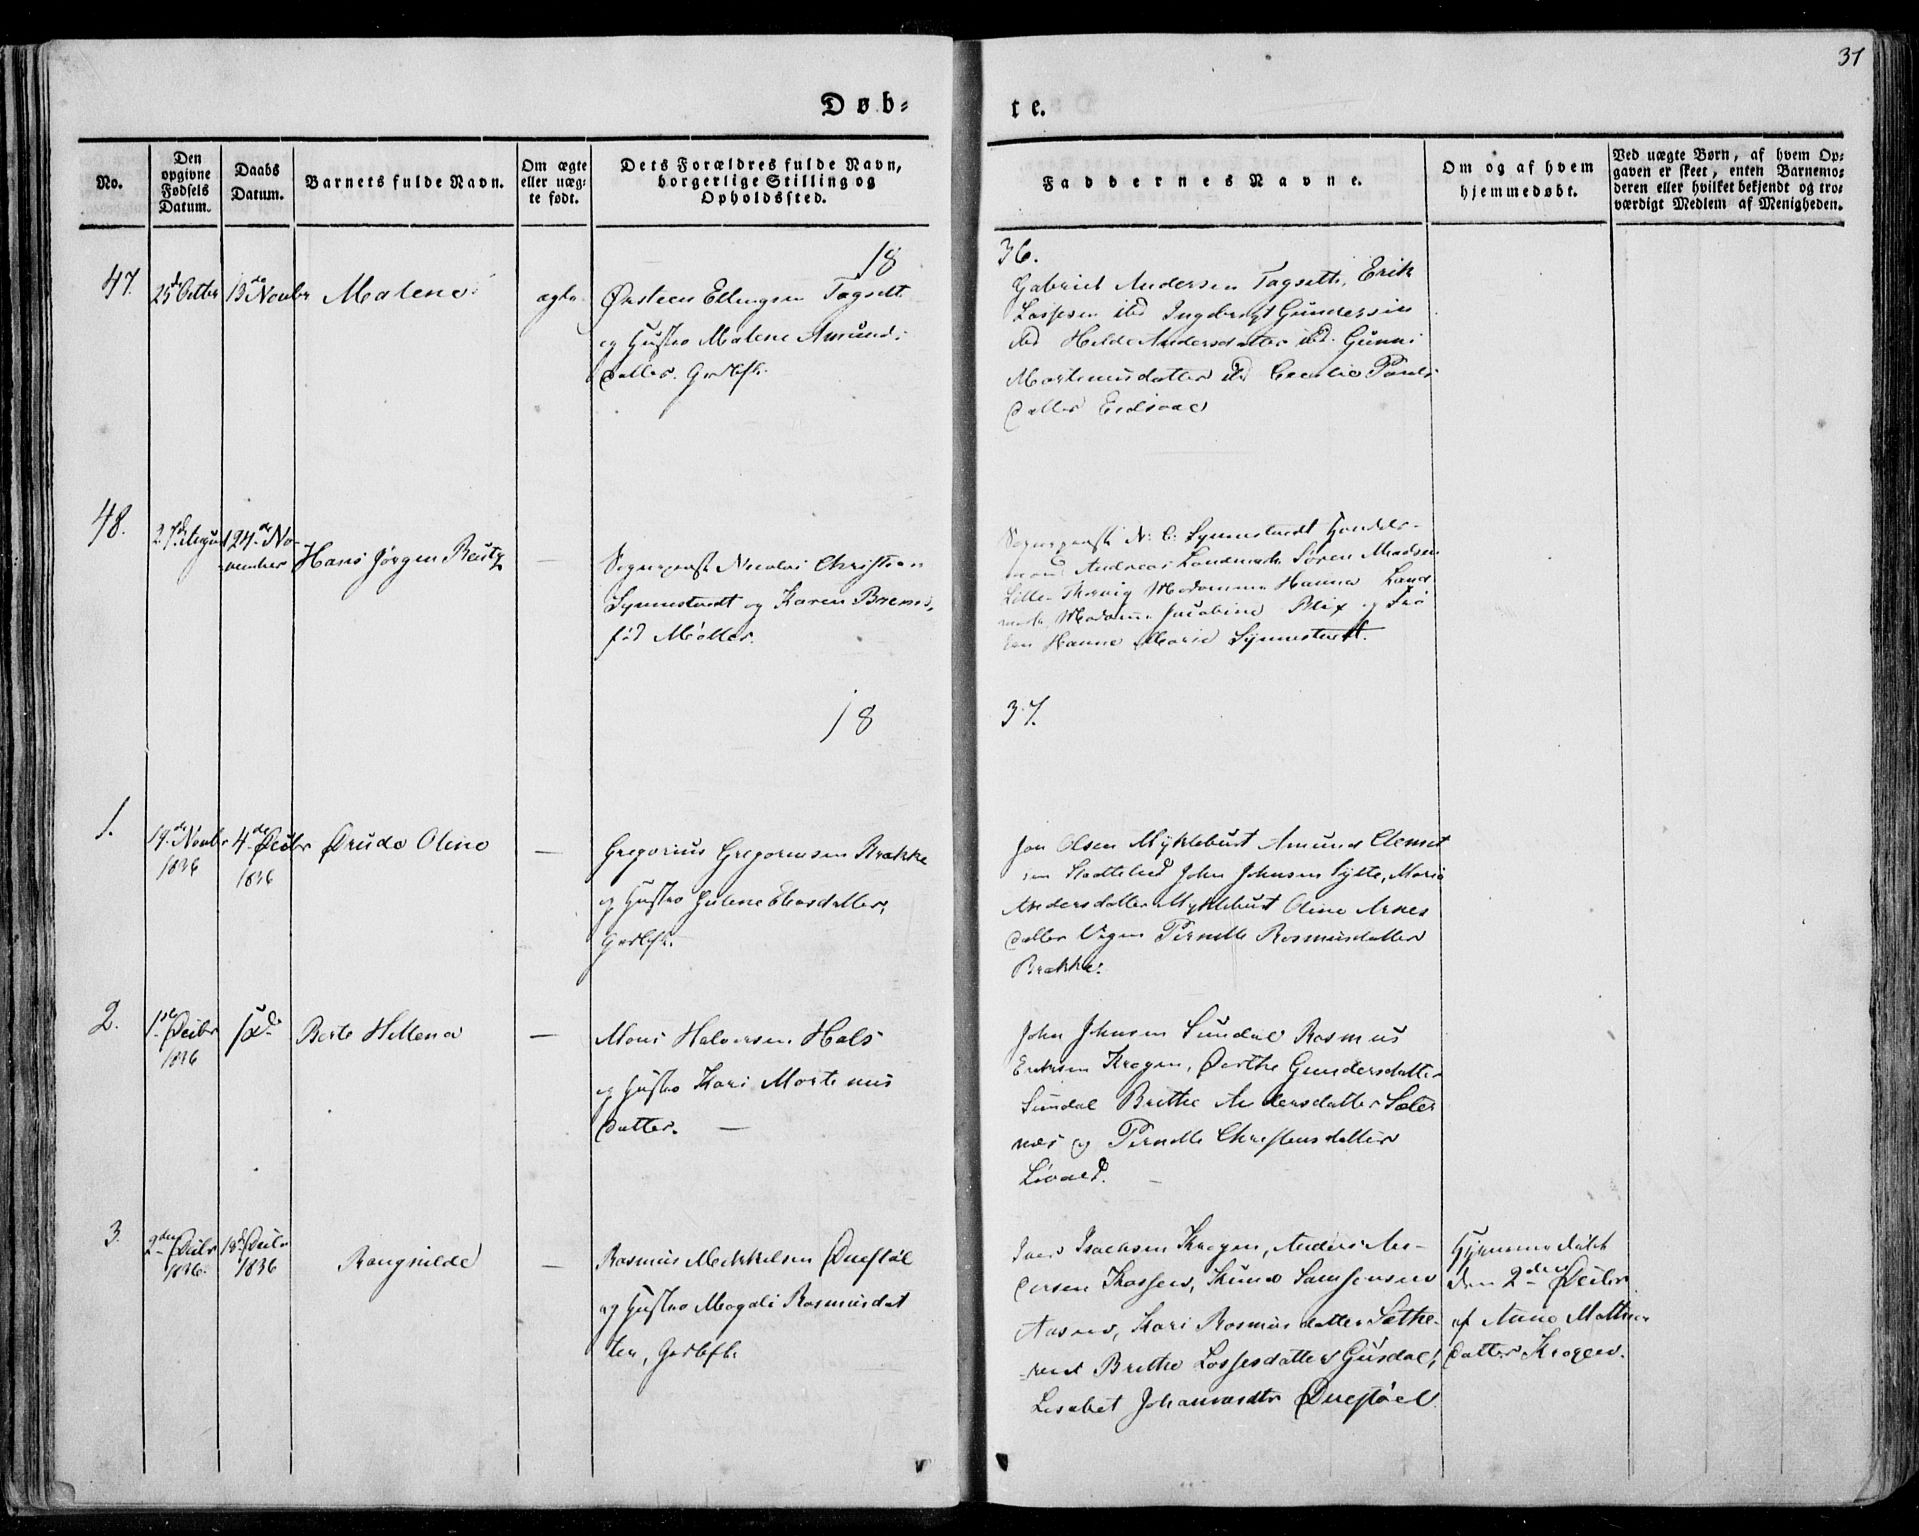 31
Døb-
te.
No.
Den
opgivne
Fødsels
Datum.
Daabs
Datum.
Barnets fulde Navn.
Om ægte
eller uæg-
te født.
Dets Forældres fulde Navn,
borgerlige Stilling og
Opholdssted.
Faddernes Navne.
Om og af hvem
hjemmedøbt.
Ved uægte Børn, af hvem Op-
gaven er skeet, enten Barnemo-
deren eller hvilket bekjendt og tro-
værdigt Medlem af Menigheden.
18
36.
47. 25d Octbr 13de Novbr Malene ægte
Østeen Ellingsen Tagseth
og Hustro Malene Amund-
datter. Grdbfk.
Gabriel Andersen Tagseth, Erik
ibd Ingebregt Gundersen
ibd Helde Andersdatter ibd. Gunni
Mortensdatter ibd Cecilie Pauls
datter Eidsvae
48. 27de August 24de No-
vember
Hans Jørgen Reutz —
Sognepræst Nicolai Christian
Synnestvedt og Karen Brems,
fød Møller.
Sognepræst N: C. Synnestvedt Handels-
mand Andreas Landmark Søren Madsen
Madamme Hanna Land
mark, Madam Jacobine Blix og Frø
ken Hanne Marie Synnestvedt.
18
37.
1. 19de Novbr
1836
4de Decbr
1836
Drude Oline —
Gregorius Gregoriusen Brække
og Hustro Helene Eliasdatter,
Grdbfk.
Jon Olsen Myklebust Amund Clemet
sen John Johnsen Sylte, Marie
Andersdatter Myklebust Oline Arnes
datter Vegen Pernelle Rasmusdatter
Brække.
2. 1ste Decbr
1836
Berte Hellena —
Mons Halvorsen Hals
og Hustro Kari Mortinus
datter. —
John Johnsen Sundal Rasmus
Eriksen Kragen, Dorthe Gundersdatter
Sundal Brithe Andersdatter Sæter
næs og Pernelle Christensdatter
Livald. —
3. 2den Decbr
1836.
13de Decbr
1836
Rangnilde —
Rasmus Mikkelsen Duestøl
og Hustro Magdli Rasmusdat
ter, Grdbfk.
Iver Isachsen Kragen, Anders An-
dersen Knud Samsonsen
Aasnes, Kari Rasmusdatter Sæthe-
Brithe Gusdal,
Lisabet Johannesdtr Duestøel
Hjemmedøbt
den 2den Decbr
af Anne Mathias
datter Kragen.